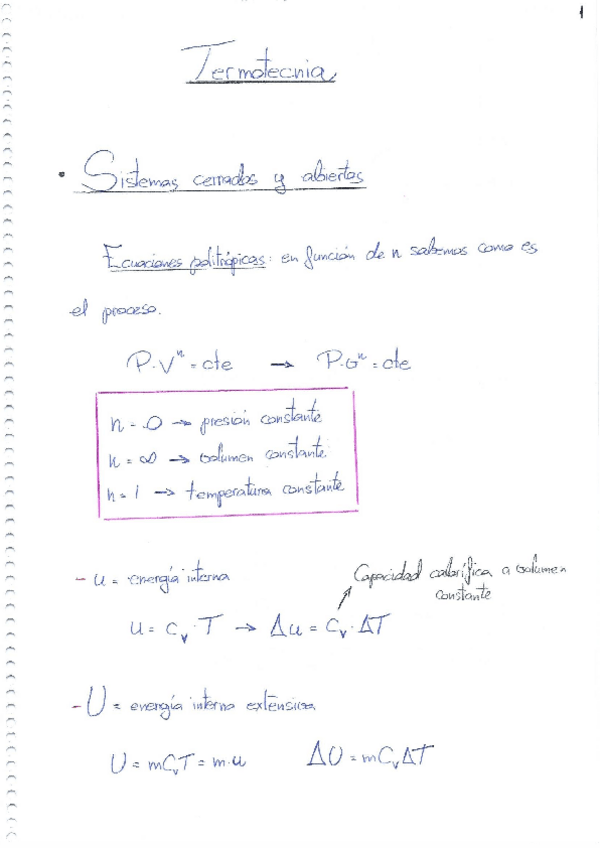 1
Termotecnia
• Sistemas cerrados y abiertos
Ecuaciones politrópicas: en función de n sabemos como es
el proceso.
P·Vⁿ = cte → P·vⁿ = cte
n = 0 → presión constante
n = ∞ → volumen constante
n = 1 → temperatura constante
- u = energía interna
Capacidad calorífica a volumen
constante
u = Cᵥ·T → Δu = Cᵥ·ΔT
- U = energía interna extensiva
U = mCᵥT = m·u ΔU = mCᵥΔT